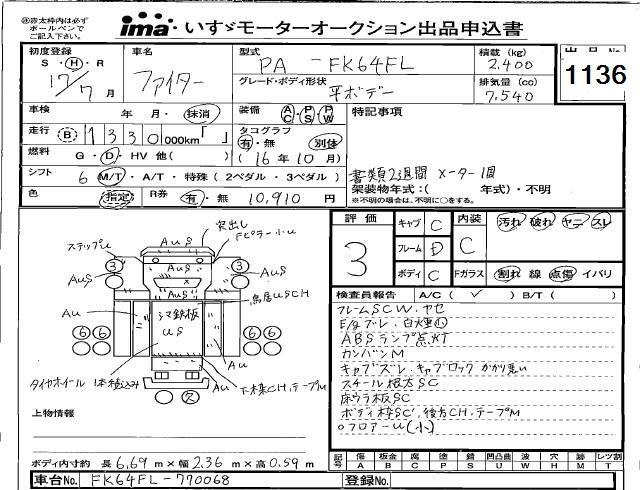 ㊟赤太枠内は必ず
ボールペンで
ご記入下さい。
ima いすゞモーターオークション出品申込書
初度登録 S・H・R 17/7月
車名 ファイター
型式 PA - FK64FL
グレード・ボディ形状 平ボデー
積載 (kg) 2,400
排気量 (cc) 7,540
出品No
1136
車検 年 月・抹消
装備 AC・PS・PW
特記事項
走行 B 1330 000km「 」
タコグラフ 有・無 別体
燃料 G・D・HV 他( )
(16年10月)
シフト 6 M/T・A/T・特殊(2ペダル・3ペダル)
書類2週間 メーター1回
架装物年式:( 年式)・不明
※不明の場合は、不明に○をする。
色 指定 R券 有・無 10,910円
評価 3
キャブ C
フレーム D
ボディ C
内装 C
汚れ 破れ ヤニ スレ
Fガラス 割れ 線 点傷 イバリ
突出し
ステップU
AUS
Fピラー小U
3
3
AUS
AUS
鳥居USCH
AU
シマ鉄板
US
AU
6 6
6 6
AU
タイヤホイール 1本積込み
下木葉CH、テープM
欠
検査員報告 A/C( ✓ ) B/T( )
フレームSCW、ヤセ
E/gズレ、白煙小
ABSランプ点灯
カンバンM
キャブズレ、キャブロックかかり悪い
スチール根太SC
床ウラ板SC
ボディ枠SC、後方CH、テープM
○フロアーU(小)
上物情報
ボディ内寸約 長6.69m×幅2.36m×高0.59m
記号 傷A 板金B 腐C 塗P 錆S 凹凸曲U 波W 穴H 跡M 痕T レツ割
車台No. FK64FL-770068
登録No.